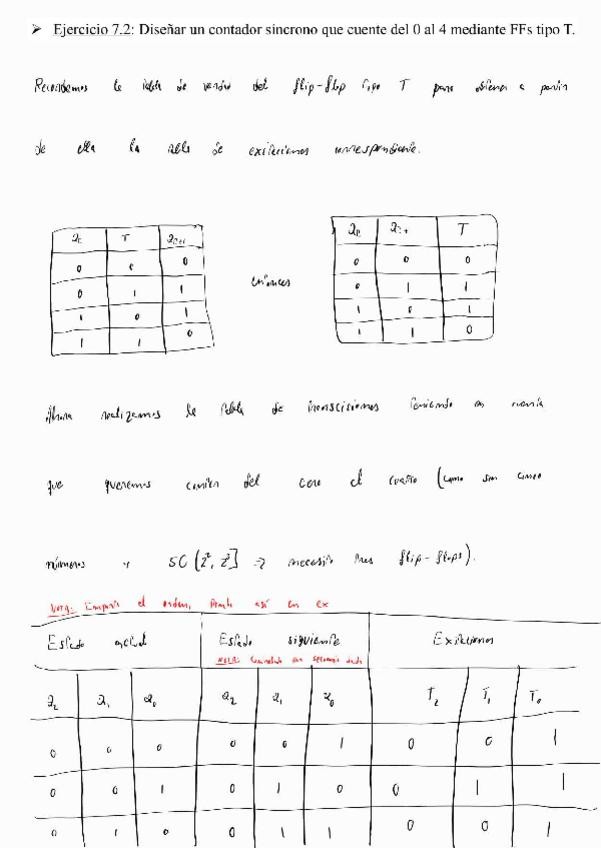 ➤ Ejercicio 7.2: Diseñar un contador síncrono que cuente del 0 al 4 mediante FFs tipo T.
Recordemos la tabla de verdad del flip-flop tipo T para obtener a partir
de ella la tabla de excitaciones correspondiente.
Qt T Qt+1
0 0 0
0 1 1
1 0 1
1 1 0
entonces
Qt Qt+1 T
0 0 0
0 1 1
1 0 1
1 1 0
Ahora realizamos la tabla de transiciones teniendo en cuenta
que queremos contar del cero al cuatro (como son cinco
números y 5∈(2², 2³] ⇒ necesito tres flip-flops).
NOTA: el orden, así en ex
Estado actual Estado siguiente Excitaciones
NOTA:
Q2 Q1 Q0 Q2 Q1 Q0 T2 T1 T0
0 0 0 0 0 1 0 0 1
0 0 1 0 1 0 0 1 1
0 1 0 0 1 1 0 0 1